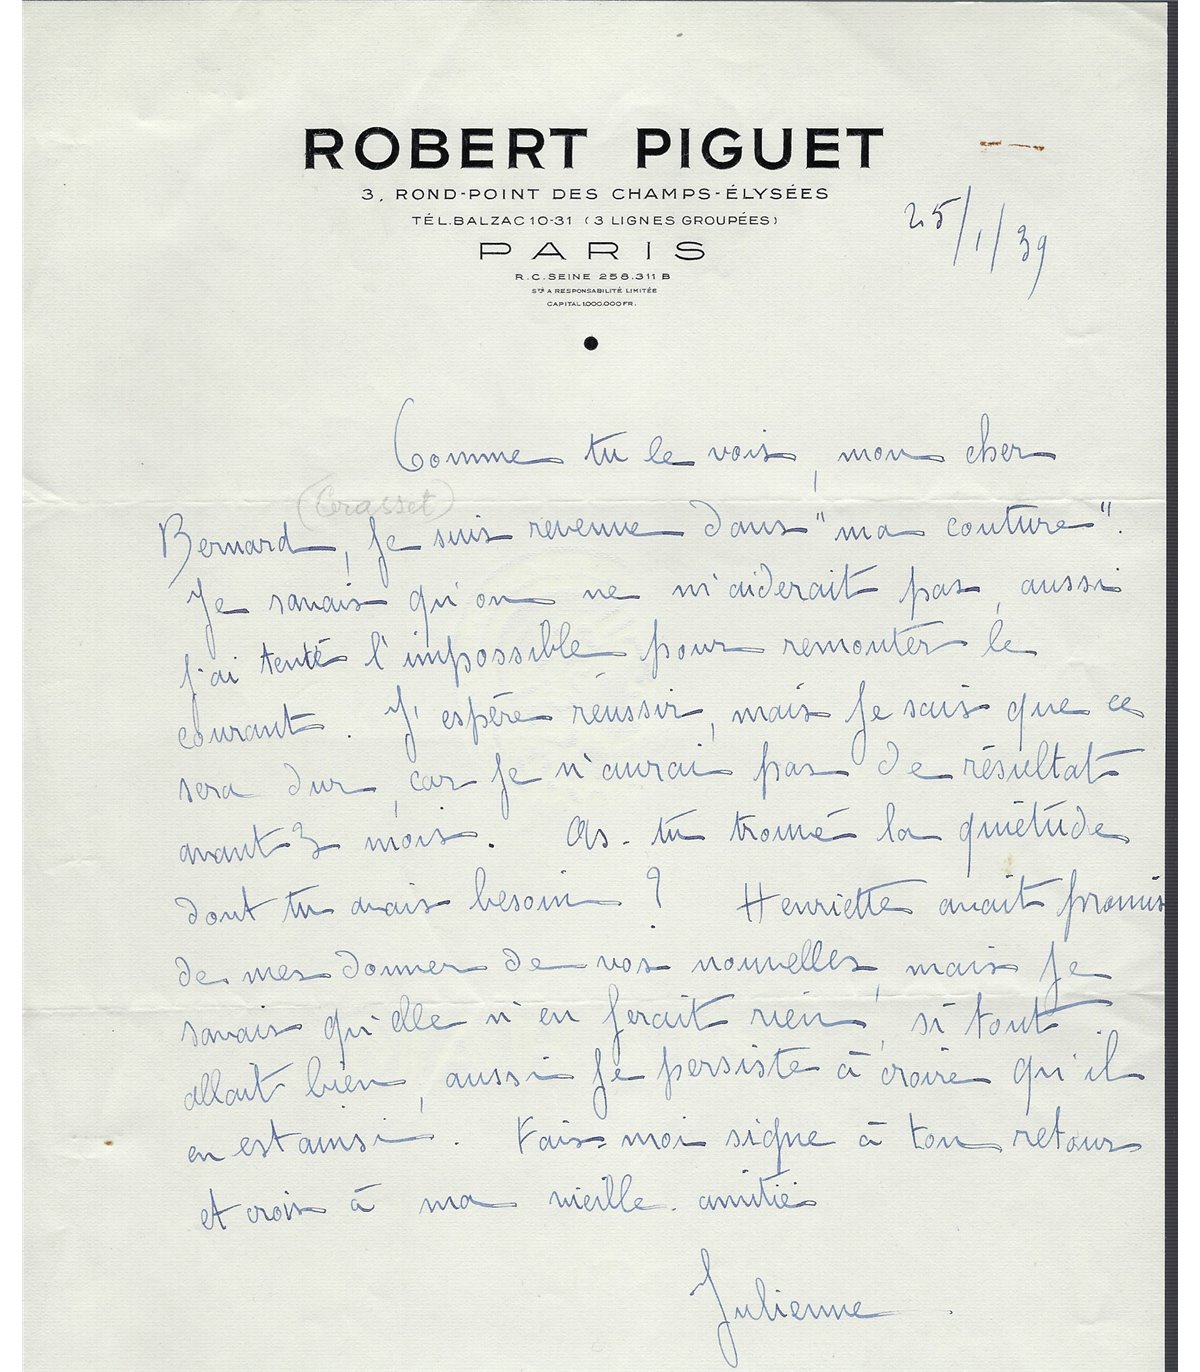 ROBERT PIGUET
3, ROND-POINT DES CHAMPS-ÉLYSÉES
TÉL. BALZAC 10-31 (3 LIGNES GROUPÉES)
PARIS
R.C. SEINE 258.311 B
Sté A RESPONSABILITÉ LIMITÉE
CAPITAL 1.000.000 FR.
25/1/39
Comme tu le vois, mon cher
(Grasset)
Bernard, je suis revenue dans "ma couture".
Je savais qu'on ne m'aiderait pas, aussi
j'ai tenté l'impossible pour remonter le
courant. J'espère réussir, mais je sais que ce
sera dur, car je n'aurai pas de résultat
avant 3 mois. As-tu trouvé la quiétude
dont tu avais besoin ? Henriette avait promis
de me donner de vos nouvelles, mais je
savais qu'elle n'en ferait rien, si tout
allait bien, aussi je persiste à croire qu'il
en est ainsi. Fais-moi signe à ton retour
et crois à ma vieille amitié
Julienne.